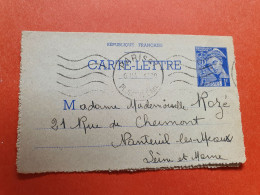 RÉPUBLIQUE FRANÇAISE
CARTE-LETTRE
PARIS
Madame Mademoiselle Rozé
21 Rue de Chermont
Nanteuil les Meaux
Seine et Marne